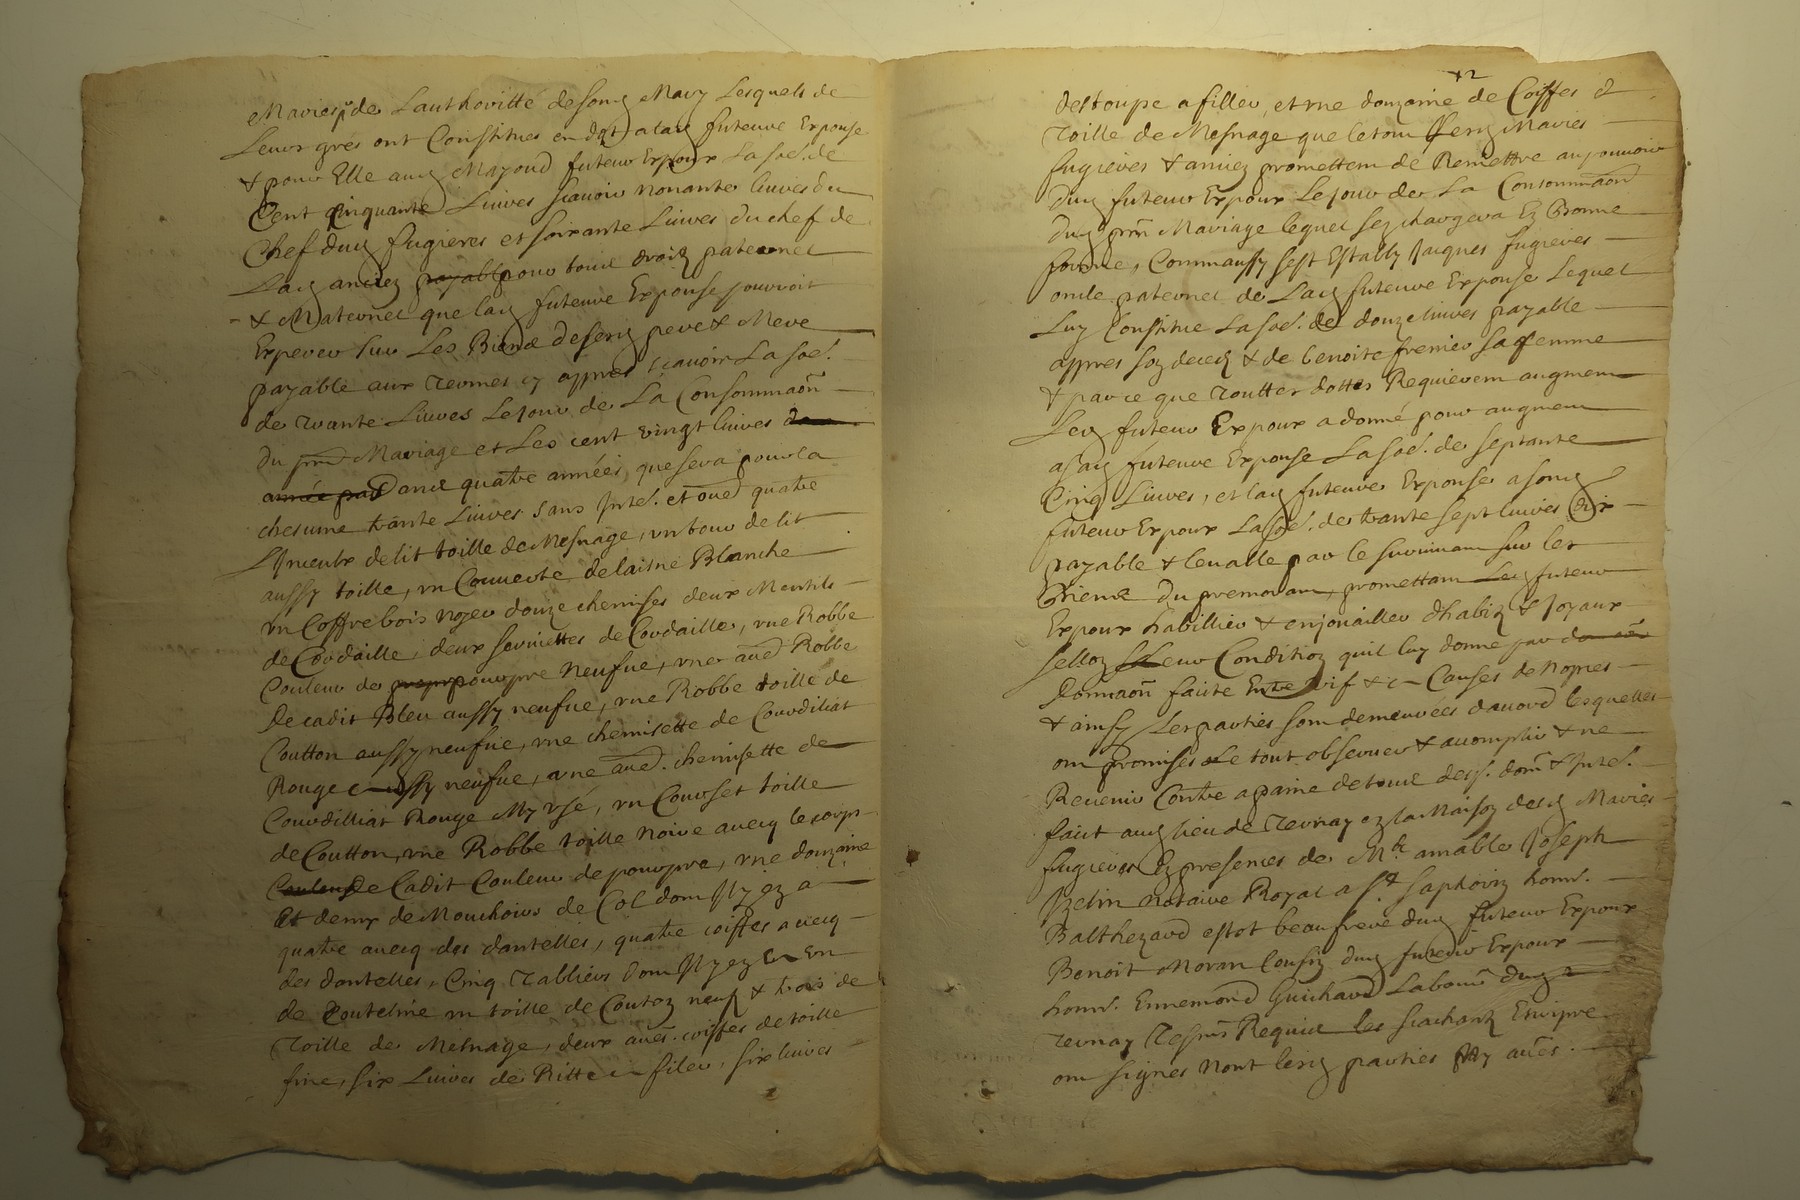 Mariés, de Lauthoritté deson Mary Lesquels de
Leur grés ont Constitues en dot a lad future Espouse
& pour Elle aud Mayoud futeur Espoux La so. de
Cent Cinquante Liures scauoir nonante liures du
Chef dud fugieres et soixante Liures du chef de
Lad anciez payable pour tous droitz paternel
& Maternel que lad futeure Expouse pouuoit
Experer sur Les Biens deserd pere & Mere
payable aux termes cy appres scauoir La soe.
de trante Liures Le jour de La Consommaôn
du pnt Mariage et Les cent vingt liures
année par Dans quatre années, que sera pour la
chesume trante Liures sans Inte. et oud quatre
Linceulx delit toille de Mesnage, un tour de lit
aussy toille, un Couuerte delaisne Blanche
un Coffre bois noyer douze chemises deux Mantils
de Cordaille, deux seruiettes de Cordaille, une Robbe
Couleur de pourpre neufue, une aud Robbe
de cadit Bleu aussy neufue, une Robbe toille de
Coutton aussy neufue, une chemisette de Courdiliat
Rouge aussy neufue, une aud. chemisette de
Courdilliat Rouge My usé, un Courset toille
de Coutton, une Robbe toille noire auecq le corps
Couleur de Cadit Couleur de pourpre, une douzaine
Et demy de Mouchoirs de Col dont Il y ez a
quatre auecq des dantelles, quatre coiffes auecq
des dantelles, Cinq Tabliers dont Il y ez en un
de Couteline un toille de Coutoz neuf & trois de
Toille de Mesnage, deux aûes. coiffes de toille
fine, six Liures de Ritte a filer, six liures
+2
destoupe a filler, et une douzaine de Coiffes d
Toille de Mesnage que letout Lesd Mariés
fugieres & anciez promettent de Remettre au pouuoir
dud futeur Expoux Le jour de La Consommaôn
dud pnt Mariage lequel sez chargera Ez Bonne
forme, Comm aussy sest Estably Jacques fugieres
oncle paternel de Lad futeure Expouse Lequel
Luy Constitue La soe. de douze liures payable
appres soz deced & de benoite fremier sa femme
& parce que Touttes dottes Requierent augment
Led futeur Expoux a donné pour augment
a sad futeure Expouse La soe. de septante
Cinq Liures, et lad futeure Expouse a sond
futeur Expoux La soe. de trante sept liures dix
payable & leuable par le suruiuant sur les
Biens du premorant, promettant Led futeur
Expoux habillier & enjouailler dhabitz & Joyaux
selloz Leur Conditioz quil luy donne par
donnaôn faite Entre vif & c Causes de nopces
& ainsy Les parties sont demeurées daccord lesquelles
ont promises Le tout obseruer & accomplir & ne
Reuenir Contre a paine de tous desp. dom & Inte.
fait aud lieu de Ternay ez la Maisoz desd Mariés
fugieres Ez presences de Me. amable Joseph
Notaire Royal a St saphorin honn.
Balthezard estot beaufrere dud futeur Expoux
Benoit Moran Cousiz dud futeur Expoux
honn. Ennemond Guichard Labour dud
Ternay Tesmoins Requid les scachantz Escripre
ont signes nont lesd parties Ny aûes.